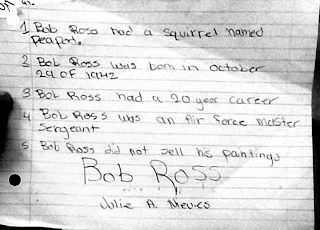 1 Bob Ross had a squirrel named
Peapod.
2 Bob Ross was born in october
29 OF 1942
3 Bob Ross had a 20 year career
4 Bob Ross was an Air Force master
Sergeant
5 Bob Ross did not sell his paintings
Bob Ross
Julie A.